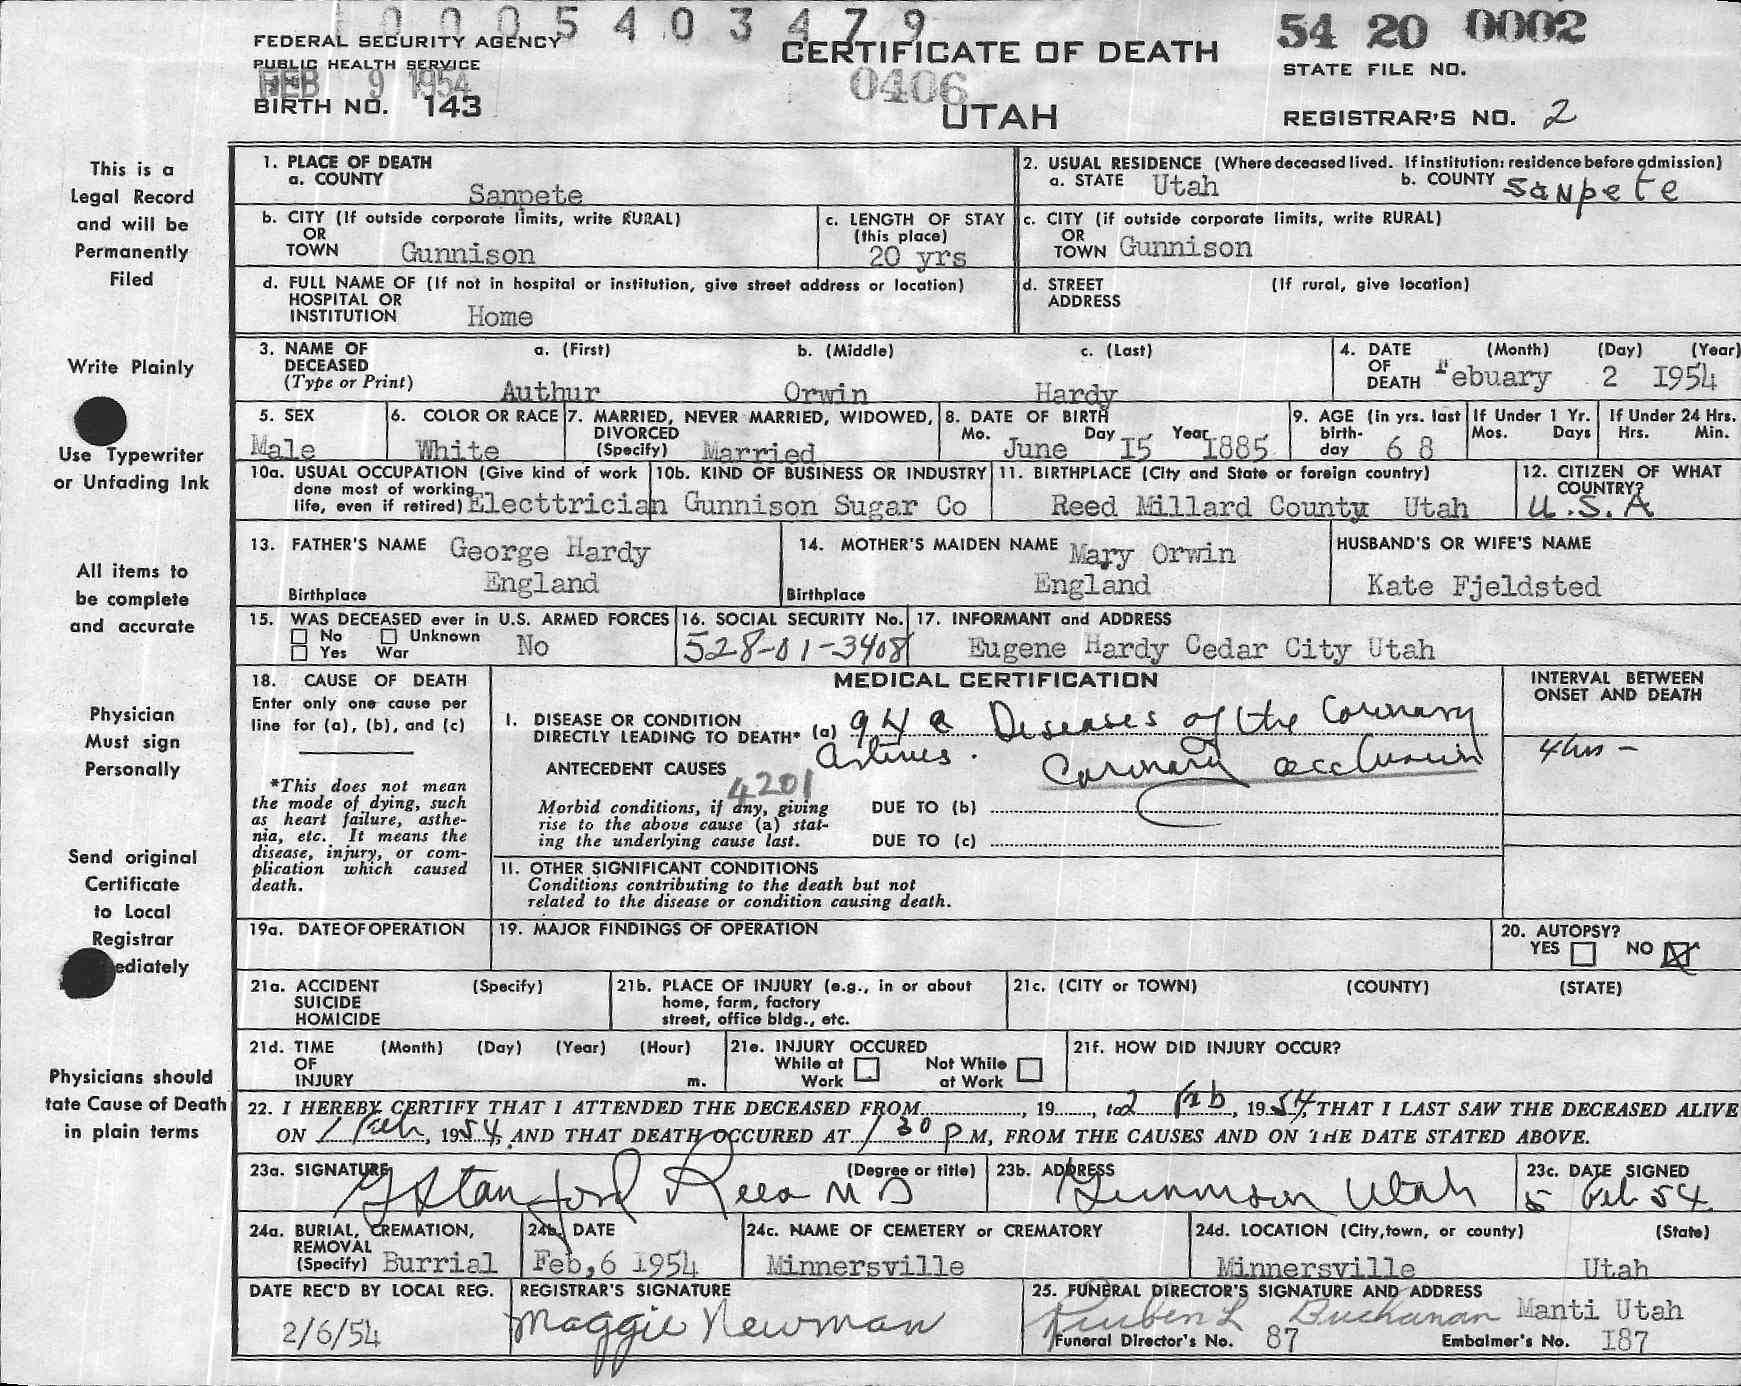 1 0 0 0 5 4 0 3 4 7 9
FEDERAL SECURITY AGENCY
PUBLIC HEALTH SERVICE
FEB 9 1954
BIRTH NO. 143
CERTIFICATE OF DEATH
0406
UTAH
54 20 0002
STATE FILE NO.
REGISTRAR'S NO. 2
This is a
Legal Record
and will be
Permanently
Filed
Write Plainly
Use Typewriter
or Unfading Ink
All items to
be complete
and accurate
Physician
Must sign
Personally
Send original
Certificate
to Local
Registrar
ediately
Physicians should
tate Cause of Death
in plain terms
1. PLACE OF DEATH
a. COUNTY Sanpete
2. USUAL RESIDENCE (Where deceased lived. If institution: residence before admission)
a. STATE Utah b. COUNTY Sanpete
b. CITY (If outside corporate limits, write RURAL)
OR
TOWN Gunnison
c. LENGTH OF STAY
(this place)
20 yrs
c. CITY (if outside corporate limits, write RURAL)
OR
TOWN Gunnison
d. FULL NAME OF (If not in hospital or institution, give street address or location)
HOSPITAL OR
INSTITUTION Home
d. STREET (If rural, give location)
ADDRESS
3. NAME OF DECEASED (Type or Print)
a. (First) b. (Middle) c. (Last)
Authur Orwin Hardy
4. DATE OF DEATH (Month) (Day) (Year)
Febuary 2 1954
5. SEX
Male
6. COLOR OR RACE
White
7. MARRIED, NEVER MARRIED, WIDOWED,
DIVORCED
(Specify) Married
8. DATE OF BIRTH
Mo. Day Year
June I5 I885
9. AGE (in yrs. last
birth-
day 6 8
If Under 1 Yr.
Mos. Days
If Under 24 Hrs.
Hrs. Min.
10a. USUAL OCCUPATION (Give kind of work
done most of working
life, even if retired) Electtrician
10b. KIND OF BUSINESS OR INDUSTRY
Gunnison Sugar Co
11. BIRTHPLACE (City and State or foreign country)
Reed Millard County Utah
12. CITIZEN OF WHAT
COUNTRY?
U.S.A
13. FATHER'S NAME George Hardy
Birthplace England
14. MOTHER'S MAIDEN NAME Mary Orwin
Birthplace England
HUSBAND'S OR WIFE'S NAME
Kate Fjeldsted
15. WAS DECEASED ever in U.S. ARMED FORCES
No Unknown No
Yes War
16. SOCIAL SECURITY No.
528-01-3408
17. INFORMANT and ADDRESS
Eugene Hardy Cedar City Utah
18. CAUSE OF DEATH
Enter only one cause per
line for (a), (b), and (c)
*This does not mean
the mode of dying, such
as heart failure, asthe-
nia, etc. It means the
disease, injury, or com-
plication which caused
death.
MEDICAL CERTIFICATION
INTERVAL BETWEEN
ONSET AND DEATH
I. DISEASE OR CONDITION
DIRECTLY LEADING TO DEATH* (a) 94a Diseases of the Coronary
Arteries. Coronary occlusion
4 hrs -
ANTECEDENT CAUSES
4201
Morbid conditions, if any, giving
rise to the above cause (a) stat-
ing the underlying cause last.
DUE TO (b)
DUE TO (c)
II. OTHER SIGNIFICANT CONDITIONS
Conditions contributing to the death but not
related to the disease or condition causing death.
19a. DATE OF OPERATION
19. MAJOR FINDINGS OF OPERATION
20. AUTOPSY?
YES NO
21a. ACCIDENT (Specify)
SUICIDE
HOMICIDE
21b. PLACE OF INJURY (e.g., in or about
home, farm, factory
street, office bldg., etc.
21c. (CITY or TOWN) (COUNTY) (STATE)
21d. TIME (Month) (Day) (Year) (Hour)
OF
INJURY m.
21e. INJURY OCCURED
While at Work Not While at Work
21f. HOW DID INJURY OCCUR?
22. I HEREBY CERTIFY THAT I ATTENDED THE DECEASED FROM , 19 , to 2 Feb, 1954, THAT I LAST SAW THE DECEASED ALIVE
ON 1 Feb, 1954, AND THAT DEATH OCCURED AT 1 30 P M, FROM THE CAUSES AND ON THE DATE STATED ABOVE.
23a. SIGNATURE (Degree or title)
G Stanford Rees M D
23b. ADDRESS
Gunnison Utah
23c. DATE SIGNED
5 Feb 54
24a. BURIAL, CREMATION,
REMOVAL
(Specify) Burrial
24b. DATE
Feb,6 I954
24c. NAME OF CEMETERY or CREMATORY
Minnersville
24d. LOCATION (City, town, or county) (State)
Minnersville Utah
DATE REC'D BY LOCAL REG.
2/6/54
REGISTRAR'S SIGNATURE
Maggie Newman
25. FUNERAL DIRECTOR'S SIGNATURE AND ADDRESS
Ruben L Buchanan Manti Utah
Funeral Director's No. 87 Embalmer's No. I87